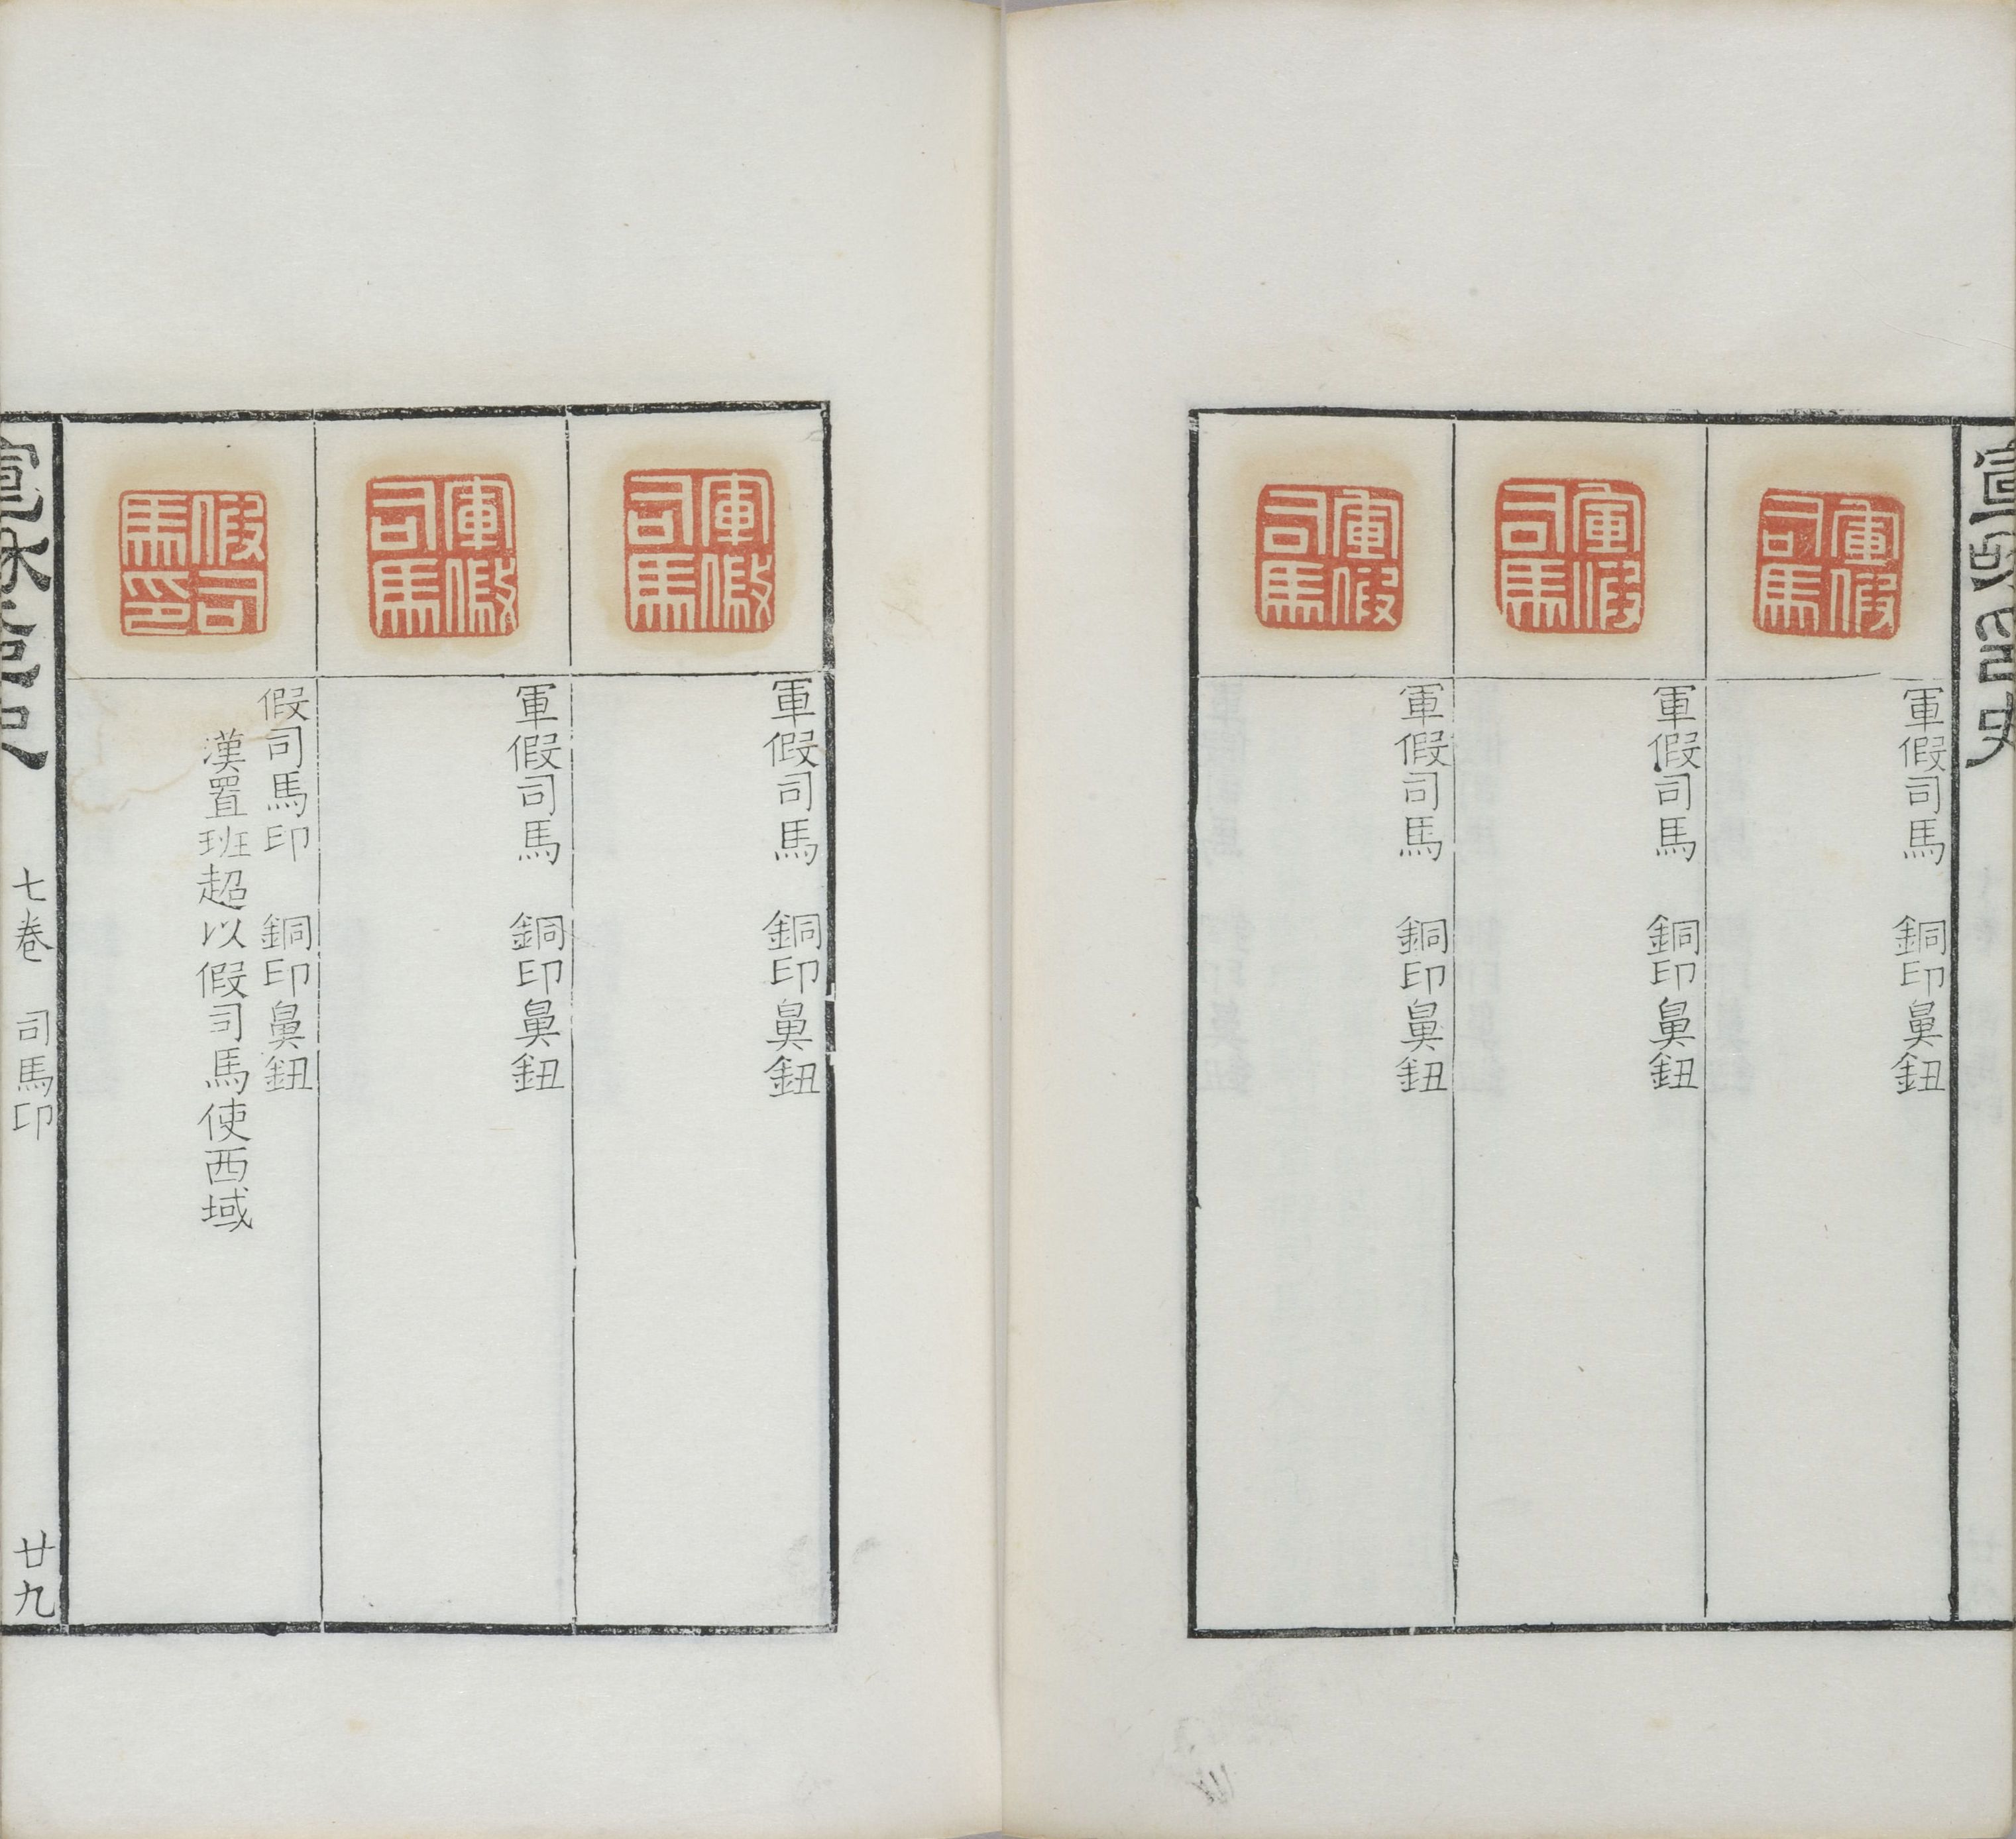 軍假
司馬
軍假司馬 銅印鼻鈕
軍假
司馬
軍假司馬 銅印鼻鈕
軍假
司馬
軍假司馬 銅印鼻鈕
軍假
司馬
軍假司馬 銅印鼻鈕
軍假
司馬
軍假司馬 銅印鼻鈕
假司
馬印
假司馬印 銅印鼻鈕
漢置班超以假司馬使西域
七卷 司馬印 廿九